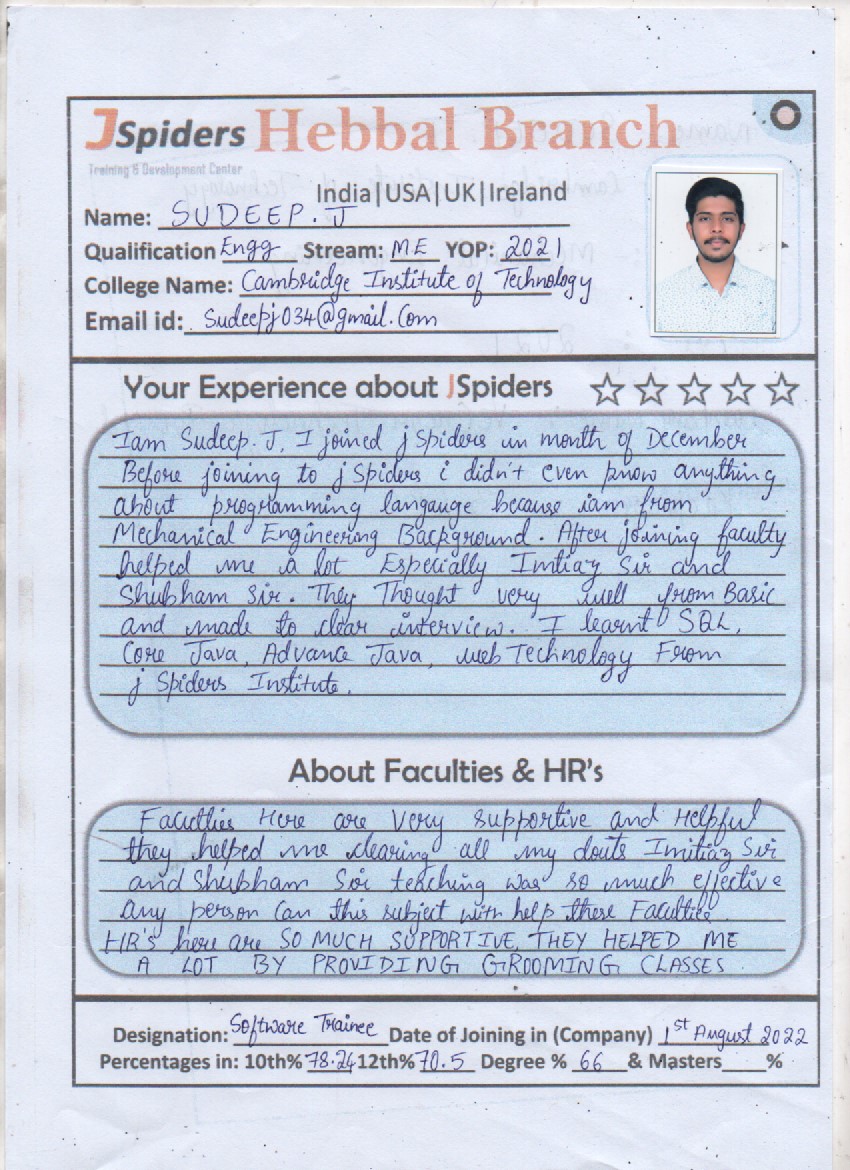 JSpiders Hebbal Branch
Training & Development Center
India|USA|UK|Ireland
Name: SUDEEP.J
Qualification Engg Stream: ME YOP: 2021
College Name: Cambridge Institute of Technology
Email id: Sudeepj034@gmail.com
Your Experience about JSpiders
Iam Sudeep.J, I joined j Spiders in month of December
Before joining to j Spiders i didn't even know anything
about programming langauge because iam from
Mechanical Engineering Background. After joining faculty
helped me a lot Especially Imtiaz Sir and
Shubham Sir. They Thought very well from Basic
and made to clear interview. I learnt SQL,
Core Java, Advance Java, web Technology From
j Spiders Institute.
About Faculties & HR's
Faculties Here are Very supportive and Helpful
they helped me clearing all my douts Imitiaz Sir
and Shubham Sir teaching was so much effective
any person can this subject with help these Faculties.
HR's here are SO MUCH SUPPORTIVE, THEY HELPED ME
A LOT BY PROVIDING GROOMING CLASSES.
Designation: Software Trainee Date of Joining in (Company) 1st August 2022
Percentages in: 10th% 78.24 12th% 70.5 Degree % 66 & Masters____%